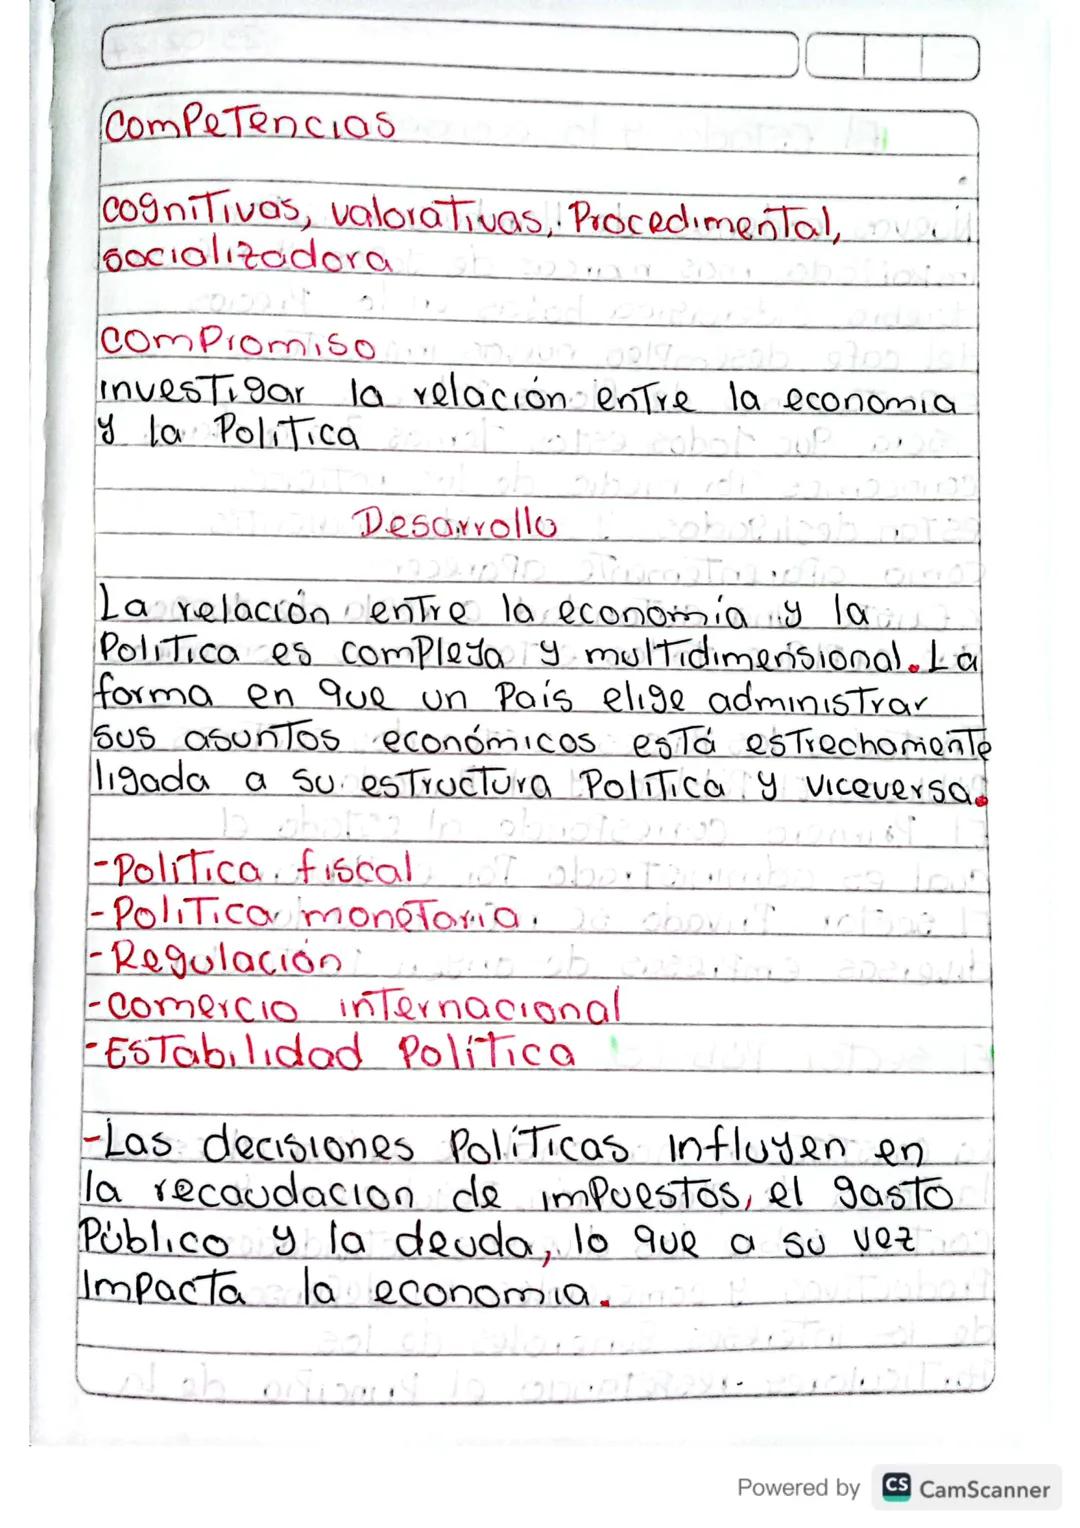 Competencias
cognitivas, valorativas, Procedimental,
socializadora
compromiso
investigar la relación entre la economia
y la Politica
Desarrollo
La relación entre la economía y la
Politica es compleja y multidimensional. La
forma en que un País elige administrar
sus asuntos económicos está estrechamente
ligada a su estructura Politica y viceversa.
-Politica fiscal
-Politica monetaria
-Regulación
-comercio internacional
-Estabilidad Política
-Las decisiones Políticas influyen en
la recaudacion de impuestos, el gasto
Público y la deuda, lo que a su vez
impacta la economia.
Powered by CS CamScanner